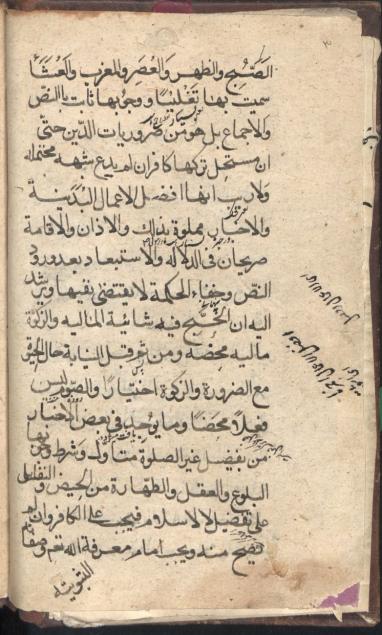 الصبح والظهر والعصر والمغرب والعشاء
سميت بها تغليبا ووجوبها ثابت بالنص
والاجماع بل هو من ضروريات الدين حتى
ان مستحل تركها كافر ان لم يدع شبهة محتملة
ولا ريب انها افضل الاعمال البدنية
والاخبار مملوة بذلك والاذان والاقامة
صريحان في الدلالة والاستبعاد بعد ورود
النص وخفاء الحكمة لا يقتضى نفيها ويرشد
اليه ان الحج فيه شائبة المالية والزكوة
مالية محضة ومن ثم قبل النيابة حال الحيوة
مع الضرورة والزكوة اختيارا والصوم ليس
فعلا محضا وما يوجد في بعض الاخبار
من تفضيل غير الصلوة متأول وشرط وجوبها
البلوغ والعقل والطهارة من الحيض والنفاس
على تفصيل لا الاسلام فيجب على الكافر وان لم
تصح منه ويجب امام معرفة الله تعم وصفاته
الثبوتية